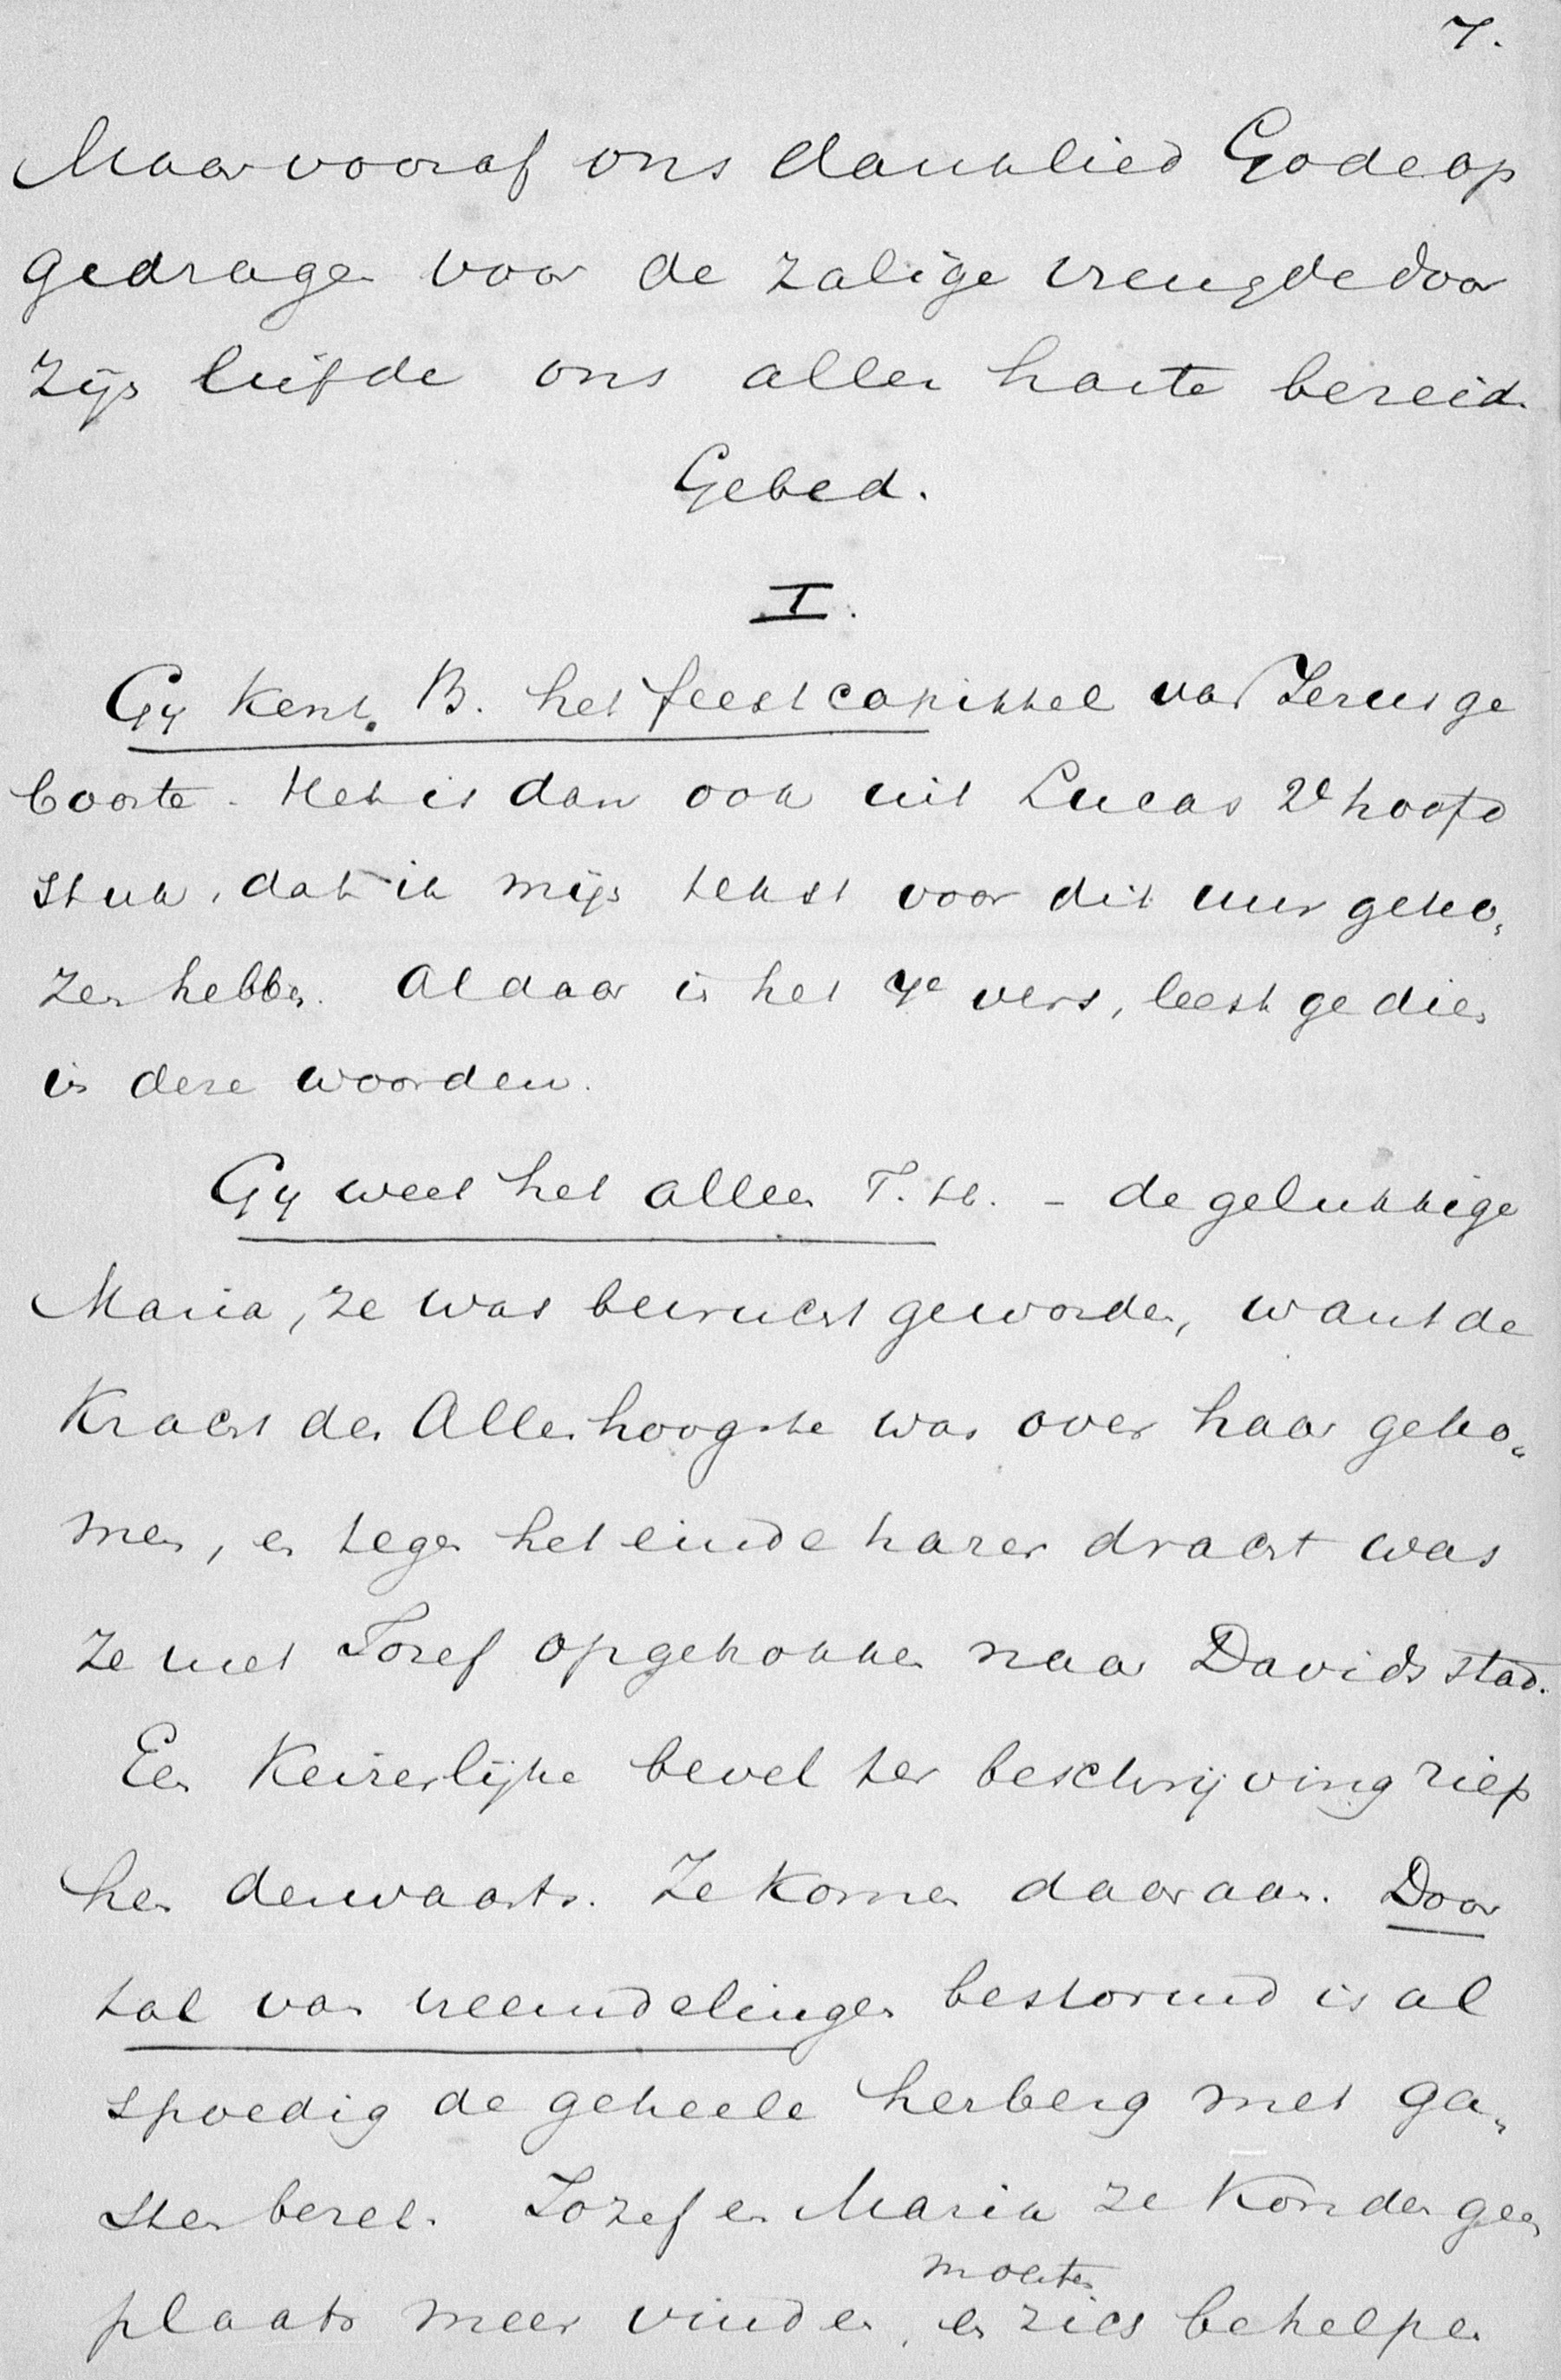 7.
Maar vooraf ons danklied Gode op
gedragen voor de zalige vreugde door
zijn liefde ons aller harte bereid.
Gebed.
I.
Gy kent, B. het feestcapittel van Jezus ge
boorte. Het is dan ook uit Lucas 2e hoofd
stuk, dat ik mijn tekst voor dit uur geko„
zen hebbe. Aldaar in het 7e vers, leest ge dien
in deze woorden.
Gy weet het allen T. H. - de gelukkige
Maria, ze was bevrucht geworden, want de
Kracht des Allerhoogste was over haar geko„
men, en tegen het einde harer dracht was
ze met Jozef opgetrokken naar Davids stad.
Een Keizerlijke bevel ter beschrijving riep
hen derwaarts. Ze komen daar aan. Door
tal van vreemdelingen bestormd is al
spoedig de geheele herberg met ga„
sten bezet. Jozef en Maria ze konden geen
plaats meer vinden, en moesten zich behelpen